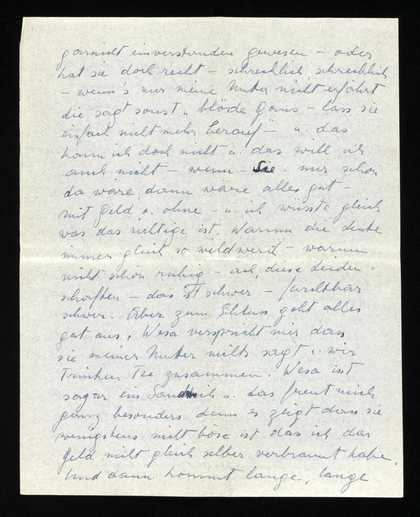 garnicht einverstanden gewesen – oder
hat sie doch recht – schrecklich, schrecklich
– wenn's nur meine Mutter nicht erfährt
die sagt sonst „blöde Gans – lass sie
einfach nicht mehr herauf" – u. das
kann ich doch nicht u. das will ich
auch nicht – wenn Sie nur schon
da wäre dann wäre alles gut –
mit Geld o. ohne – u. ich wüsste gleich
was das richtige ist. Warum die Leute
immer gleich so wild werden – warum
nicht schön ruhig – ach, diese Leiden-
schaften – das ist schwer – furchtbar
schwer. Aber zum Schluss geht alles
gut aus, Wesa verspricht mir dass
sie meiner Mutter nichts sagt u. wir
trinken Tee zusammen. Wesa isst
sogar ein Sandwich u. das freut mich
ganz besonders denn es zeigt dass sie
wenigstens nicht böse ist dass ich das
Geld nicht gleich selber verbrannt habe.
Und dann kommt lange, lange